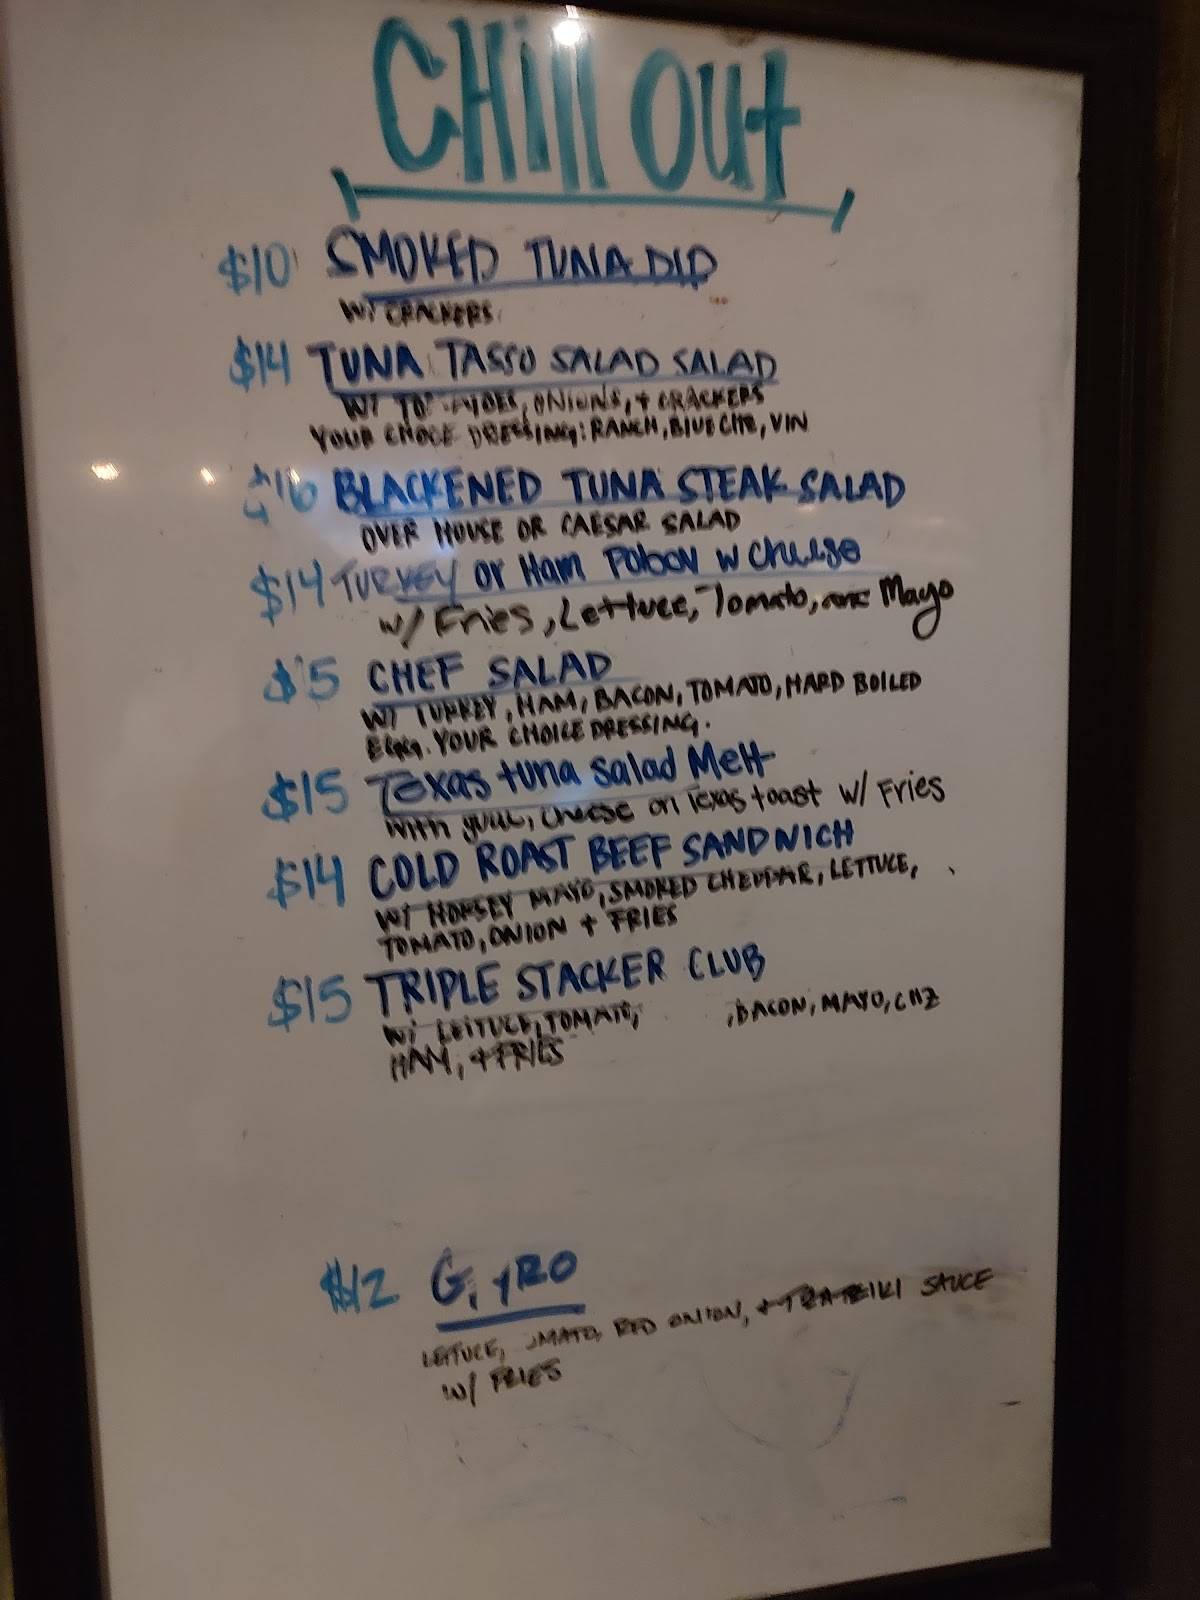 CHill Out
$10 SMOKED TUNA DIP
W/ CRACKERS
$14 TUNA TASSO SALAD SALAD
W/ ONIONS, + CRACKERS
YOUR CHOCE DRESSING: RANCH, BLUE CHZ, VIN
$16 BLACKENED TUNA STEAK SALAD
OVER HOUSE OR CAESAR SALAD
$14 TURKEY or Ham Poboy w Cheese
w/ Fries, Lettuce, Tomato, and Mayo
$15 CHEF SALAD
W/ TURKEY, HAM, BACON, TOMATO, HARD BOILED
EGG. YOUR CHOICE DRESSING.
$15 Texas tuna salad Melt
with cheese on Texas toast w/ Fries
$14 COLD ROAST BEEF SANDWICH
W/ HORSEY MAYO, SMOKED CHEDDAR, LETTUCE,
TOMATO, ONION + FRIES
$15 TRIPLE STACKER CLUB
W/ LETTUCE, TOMATO, , BACON, MAYO, CHZ
HAM, + FRIES
$12 GYRO
LETTUCE, RED ONION, + SAUCE
W/ FRIES